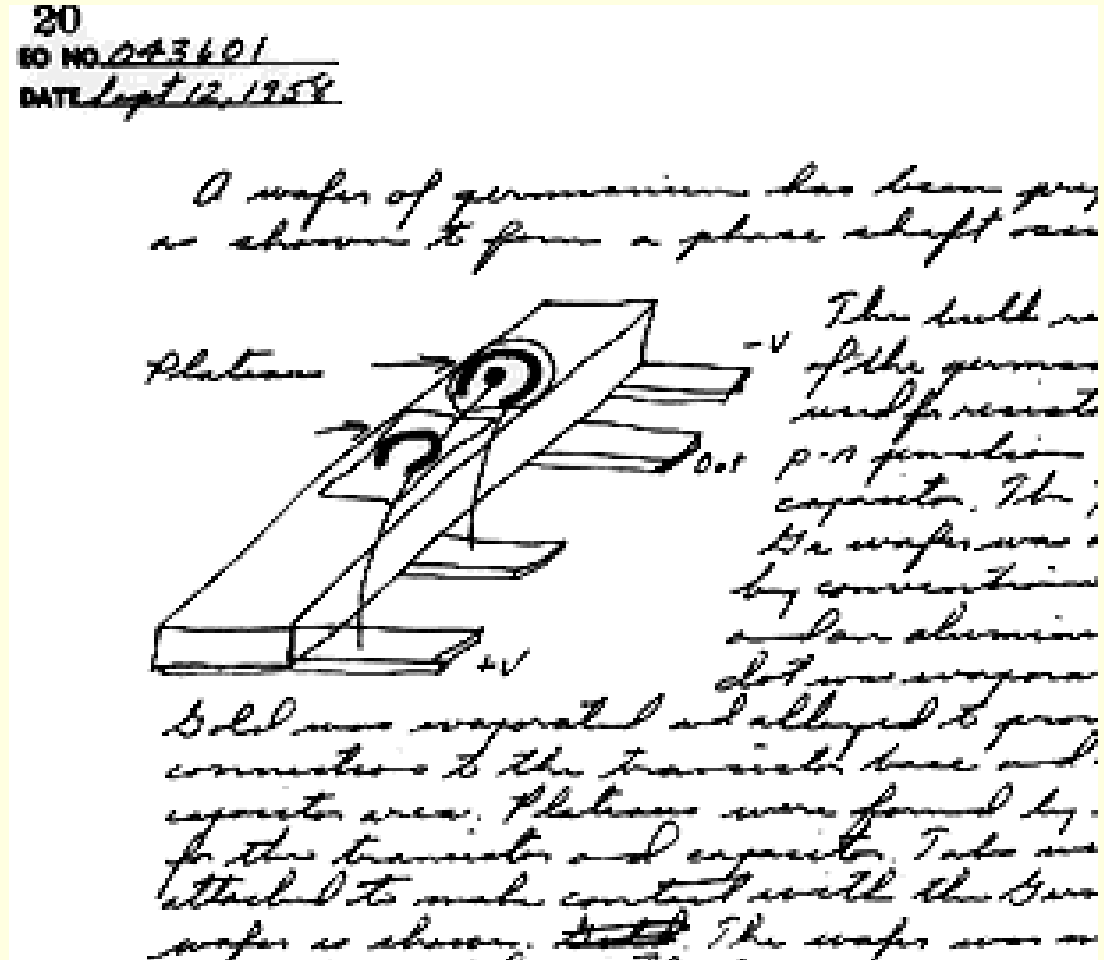 20
EO NO. 043601
DATE Sept 12, 1958
A wafer of germanium has been prep
as shown to form a phase shift osci
The bulk re
-V
of the german
Plateaus
used for resisto
Out
p-n junction
capacitor. The
Ge wafer was
by convention
and an aluminum
dot was evapora
+V
Gold was evaporated and alloyed to prov
connections to the transistor base and
capacitor area. Plateaus were formed by
for the transistor and capacitor. Tabs we
attached to make contact with the Germ
wafer as shown. The wafer was m